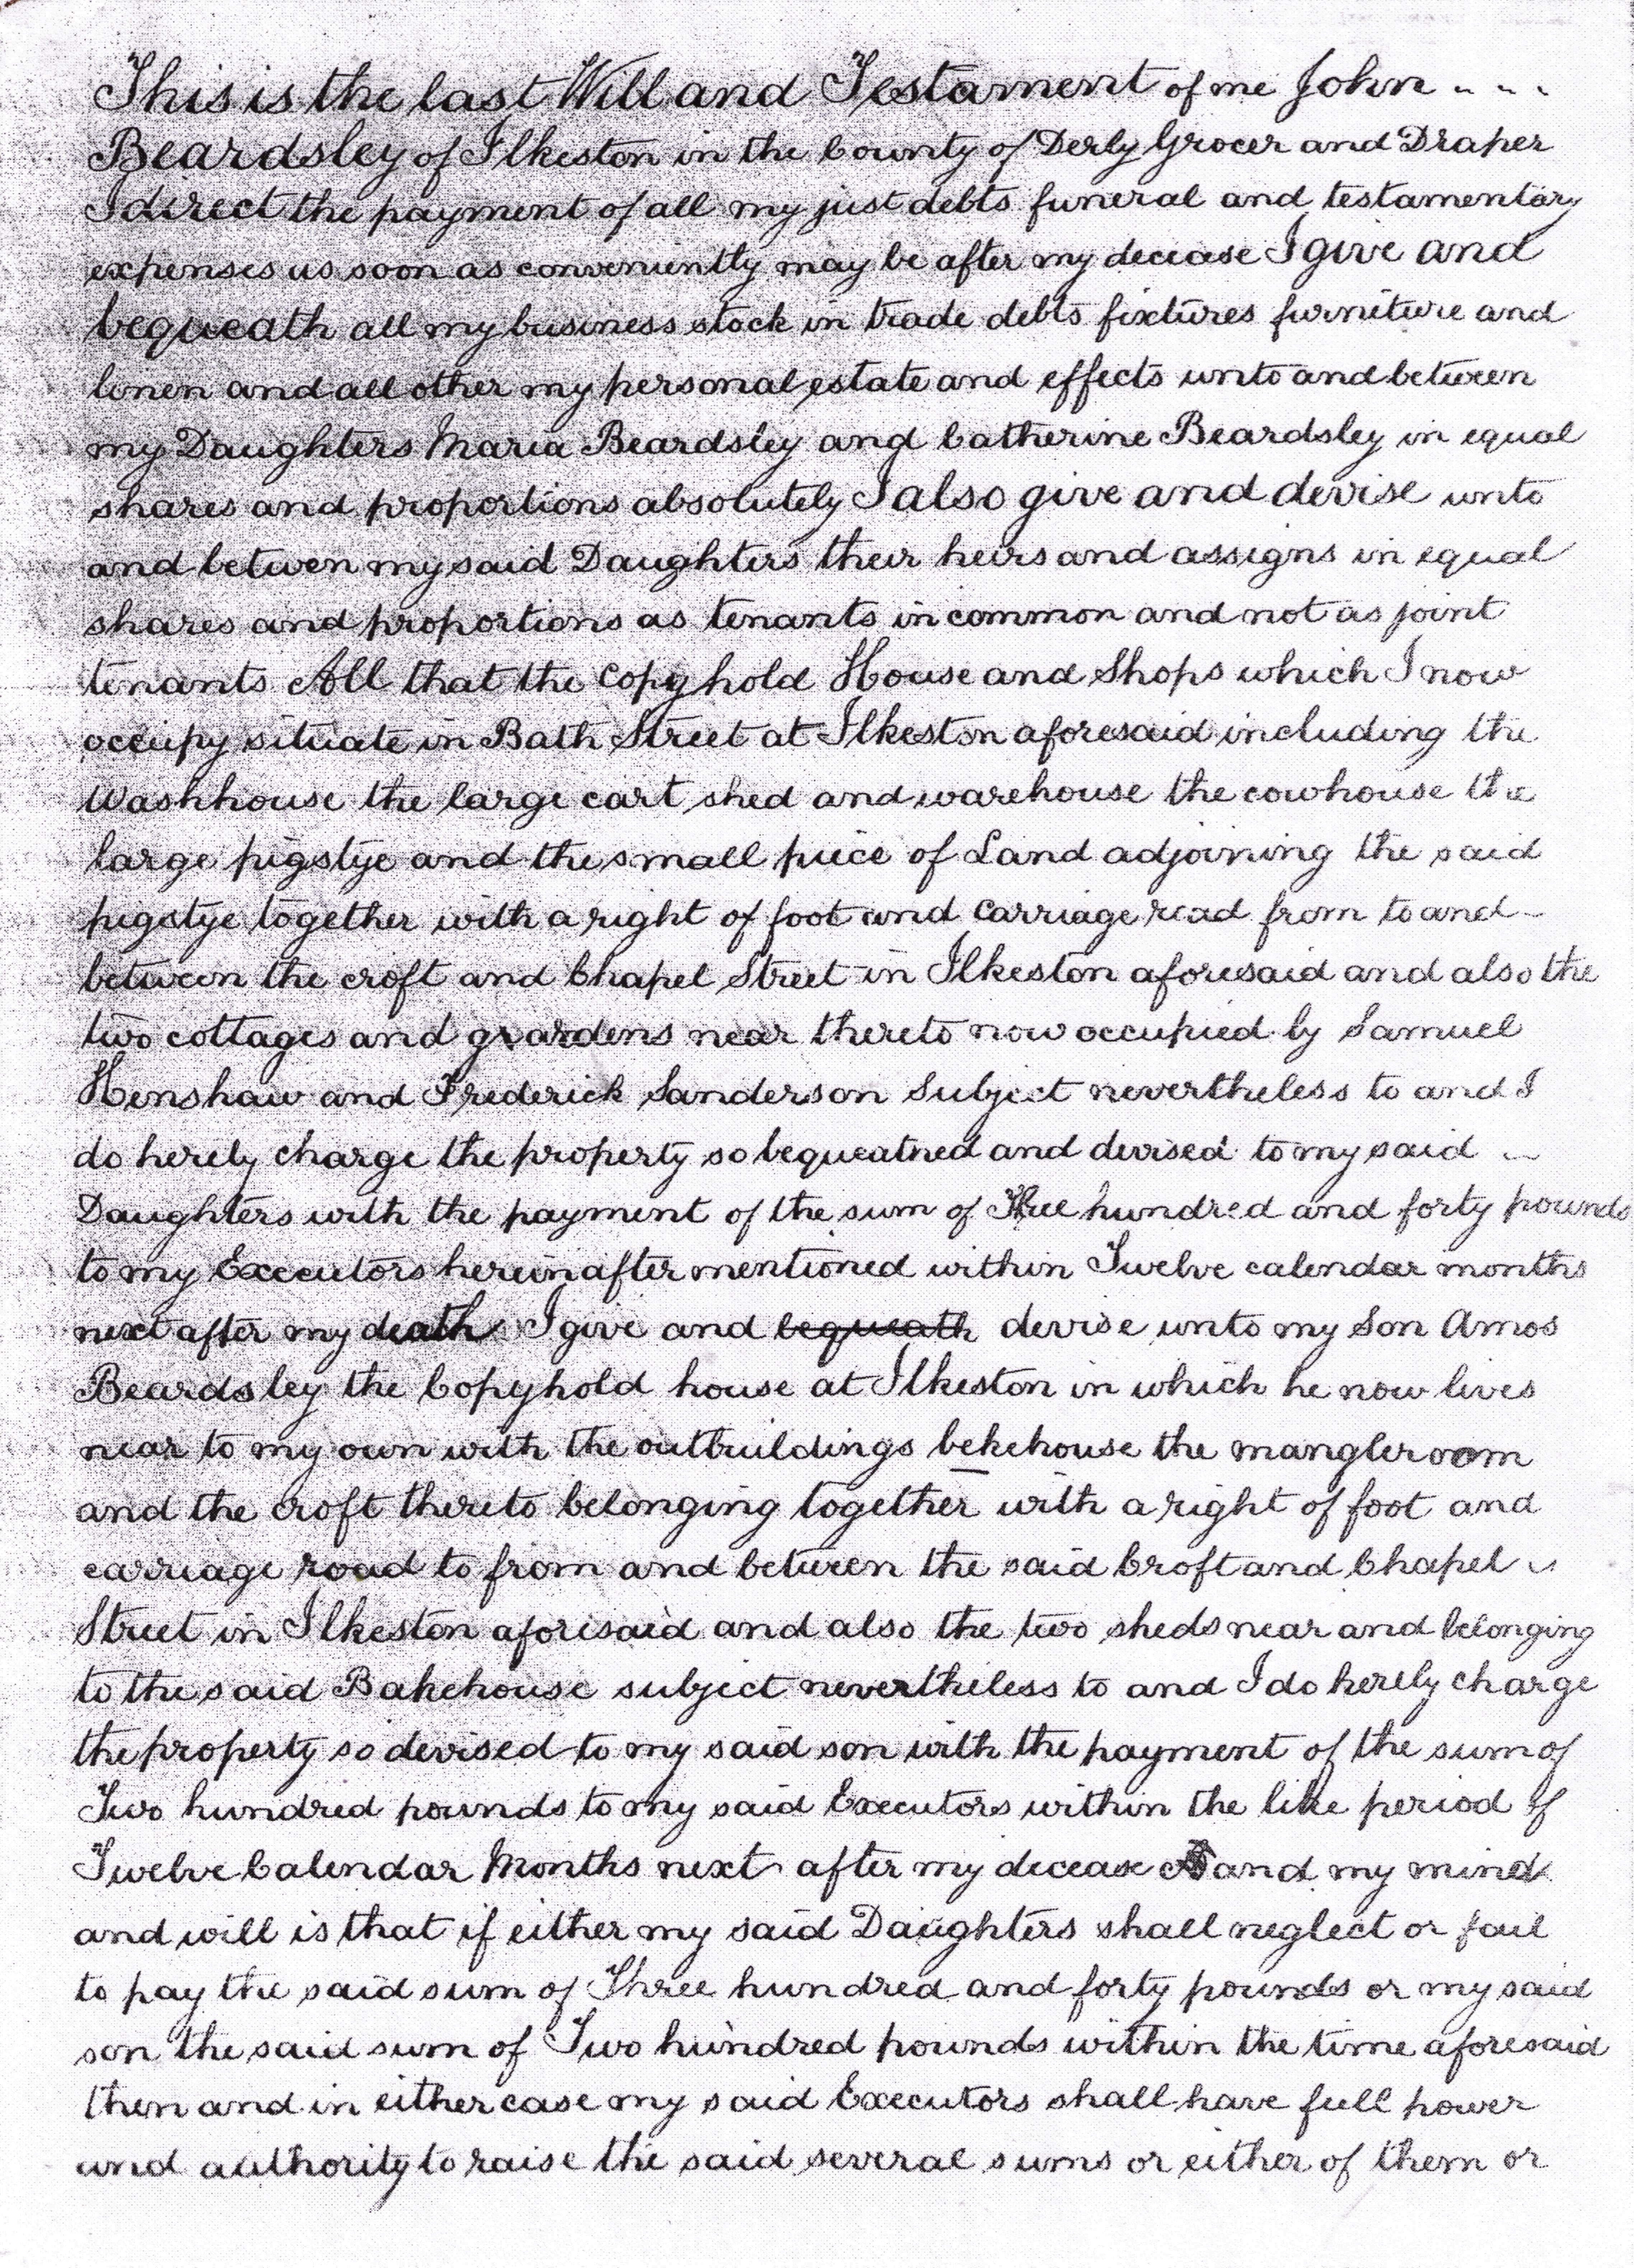 This is the last Will and Testament of me John - - -
Beardsley of Ilkeston in the County of Derby Grocer and Draper
I direct the payment of all my just debts funeral and testamentary
expenses as soon as conveniently may be after my decease I give and
bequeath all my business stock in trade debts fixtures furniture and
linen and all other my personal estate and effects unto and between
my Daughters Maria Beardsley and Catherine Beardsley in equal
shares and proportions absolutely I also give and devise unto
and between my said Daughters their heirs and assigns in equal
shares and proportions as tenants in common and not as joint
tenants All that the Copyhold House and Shops which I now
occupy situate in Bath Street at Ilkeston aforesaid including the
Washhouse the large cart shed and warehouse the cowhouse the
large pigstye and the small piece of Land adjoining the said
pigstye together with a right of foot and carriage road from to and -
between the croft and Chapel Street in Ilkeston aforesaid and also the
two cottages and gardens near thereto now occupied by Samuel
Henshaw and Frederick Sanderson Subject nevertheless to and I
do hereby charge the property so bequeathed and devised to my said -
Daughters with the payment of the sum of Three hundred and forty pounds
to my Executors hereinafter mentioned within Twelve calendar months
next after my death I give and bequeath devise unto my Son Amos
Beardsley the Copyhold house at Ilkeston in which he now lives
near to my own with the outbuildings bekehouse the mangleroom
and the croft thereto belonging together with a right of foot and
carriage road to from and between the said Croft and Chapel -
Street in Ilkeston aforesaid and also the two sheds near and belonging
to the said Bakehouse subject nevertheless to and I do hereby charge
the property so devised to my said son with the payment of the sum of
Two hundred pounds to my said Executors within the like period of
Twelve Calendar Months next after my decease and my mind
and will is that if either my said Daughters shall neglect or fail
to pay the said sum of Three hundred and forty pounds or my said
son the said sum of Two hundred pounds within the time aforesaid
then and in either case my said Executors shall have full power
and authority to raise the said several sums or either of them or